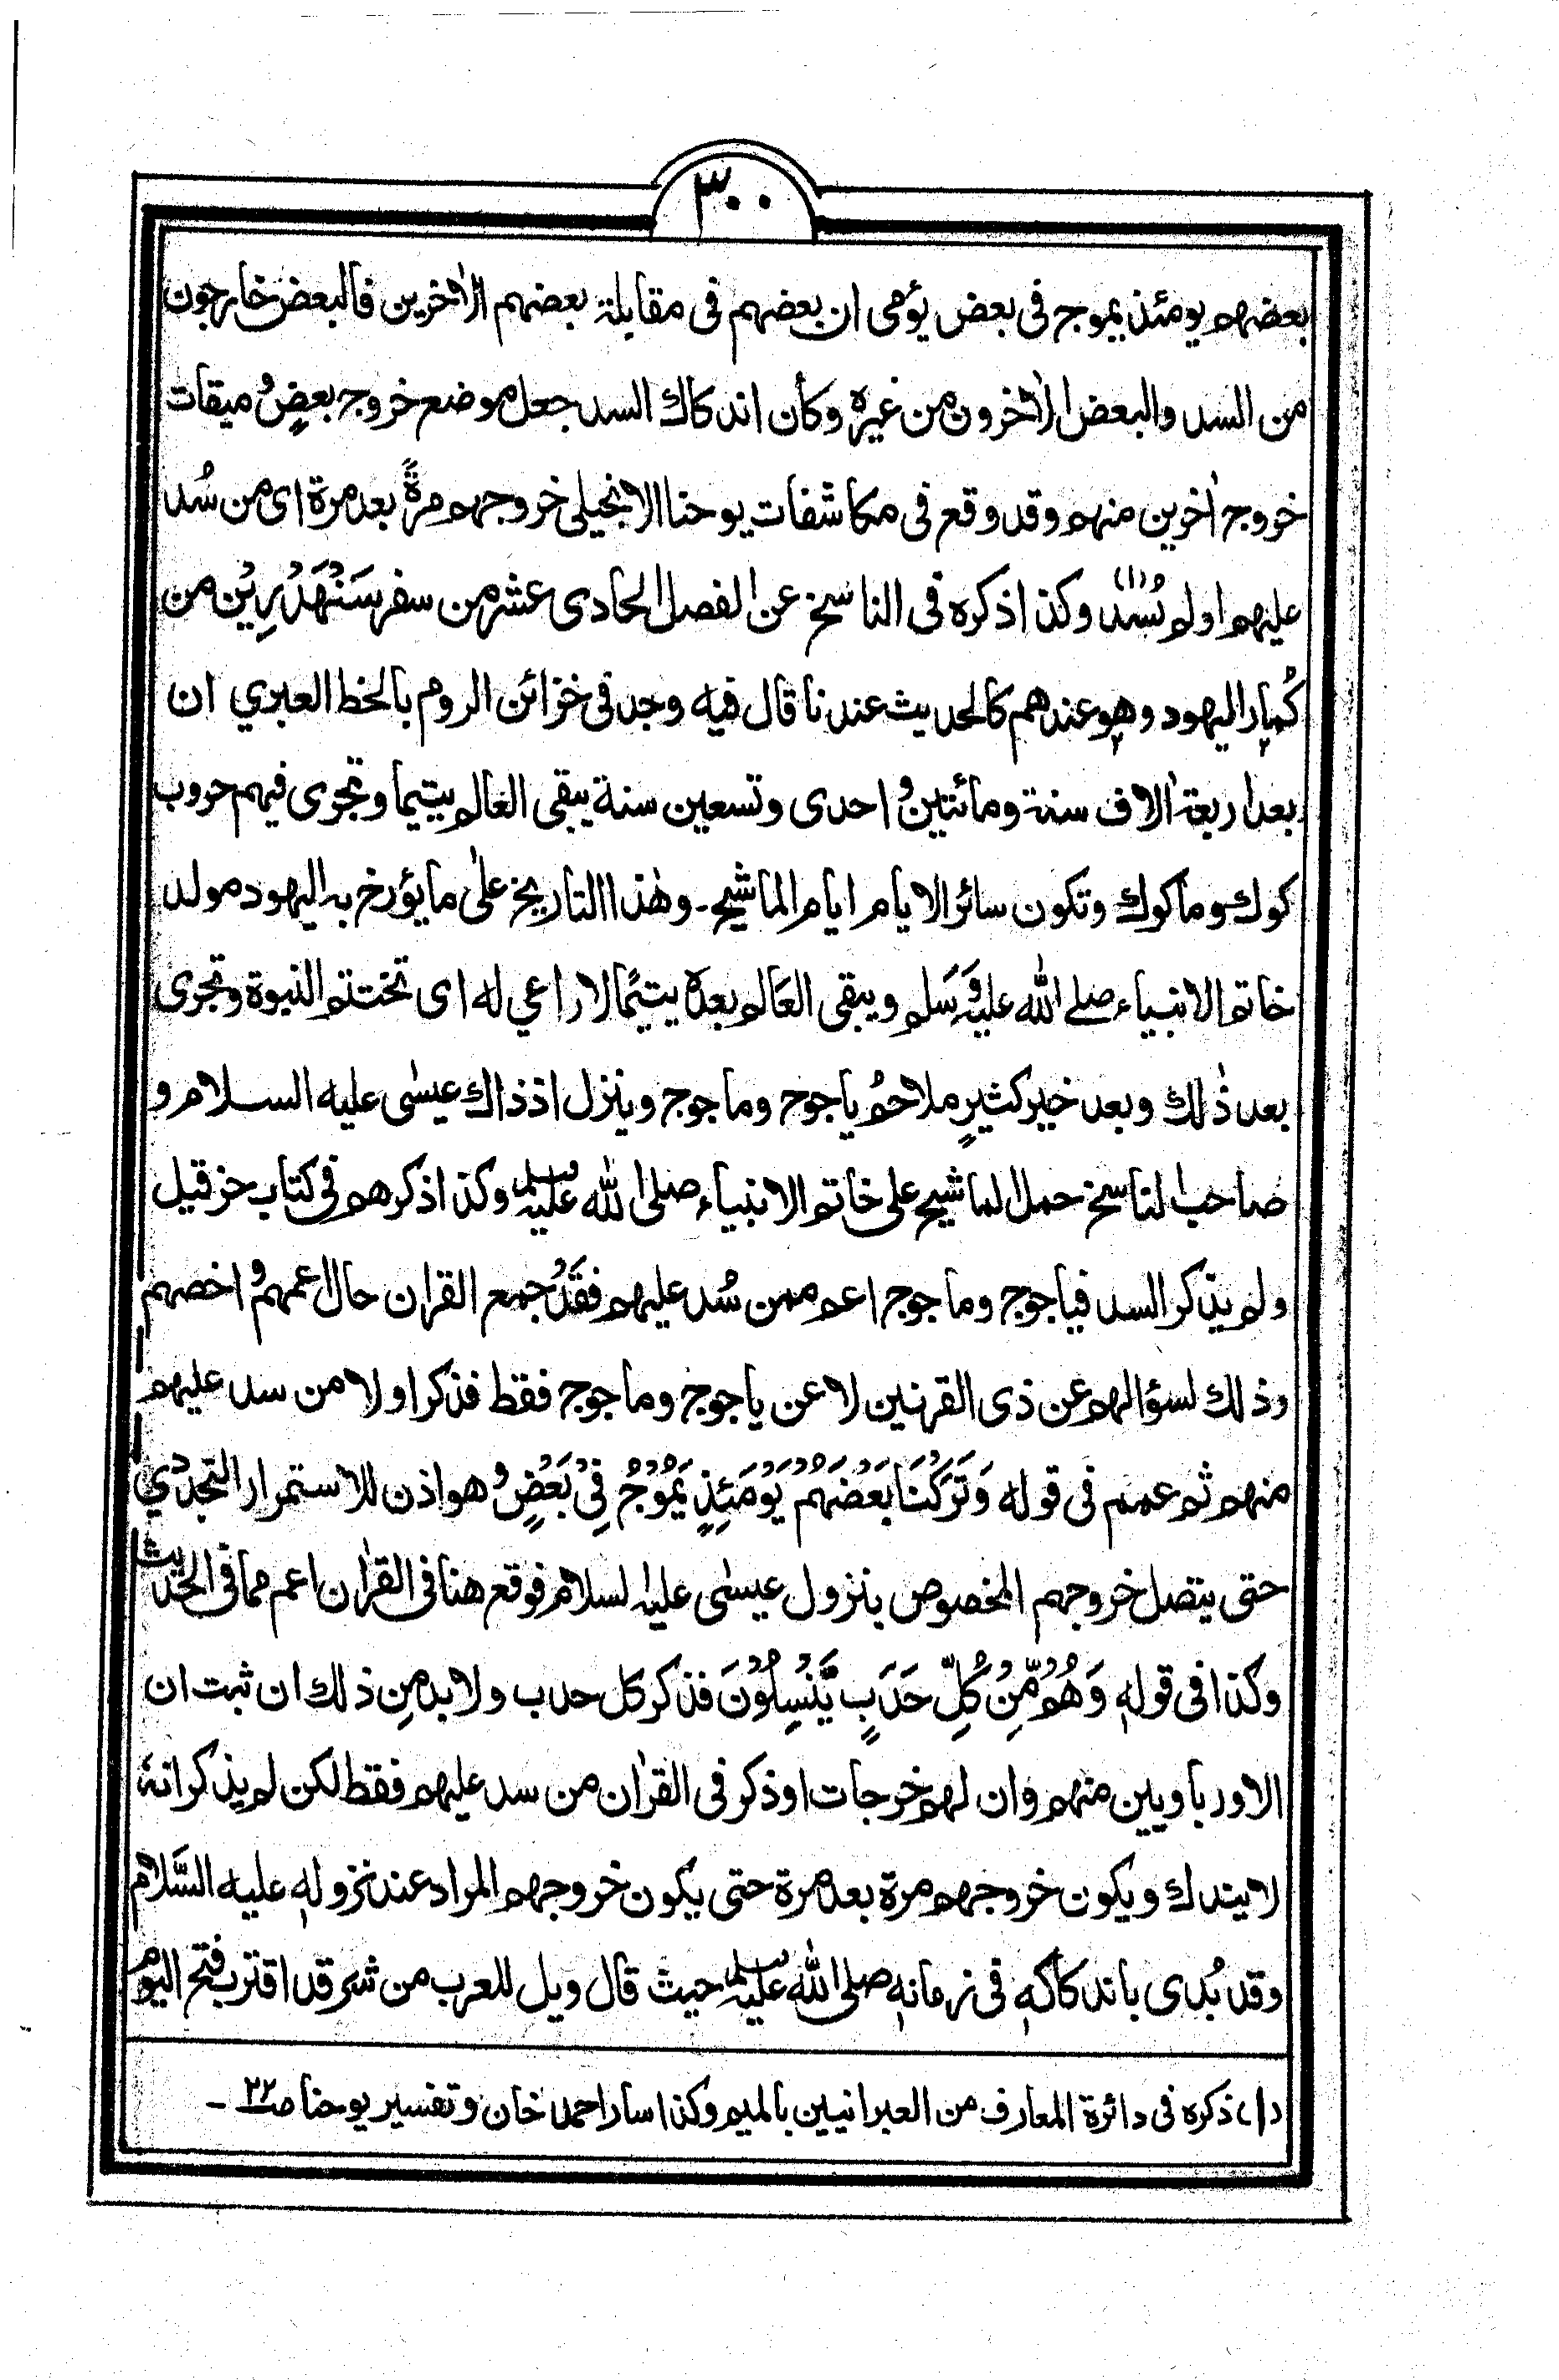 ٣٠٠
بعضهم يومئذ يموج فى بعض يؤمى ان بعضهم فى مقابلة بعضهم الاٰخرين فالبعض خارجون
من السد والبعض الاٰخرون من غيره وكأن اندكاك السد جعل موضع خروج بعضٍ وميقات
خروج اٰخرين منهم وقد وقع فى مكاشفات يوحنا الانجيلى خروجهم مرةً بعد مرة اى من سُد
عليهم او لم يُسد (۱) وكذا ذكره فى الناسخ عن الفصل الحادى عشر من سفر سَنْهَدْرِيْن من
كُبار اليهود وهو عندهم كالحديث عندنا قال فيه وجد فى خزائن الروم بالخط العبري ان
بعد اربعة اٰلاف سنة ومائتين واحدى وتسعين سنة يبقى العالم يتيما وتجرى فيهم حروب
كوك وماكوك وتكون سائر الايام ايام الماشيح ـ وهٰذا التاريخ علٰى ما يؤرخ به اليهود مولد
خاتم الانبياء صلے الله عليه وَسَلم ويبقى العَالم بعده يتيمًا لا راعي له اى تختتم النبوة وتجرى
بعد ذٰلك وبعد خير كثيرٍ ملاحمُ ياجوج وماجوج وينزل اذ ذاك عيسٰى عليه السلام و
صاحب الناسخ حمل الماشيح على خاتم الانبياء صلى الله عليه وسلم وكذا ذكرهم فى كتاب حزقيل
ولم يذكر السد فياجوج وماجوج اعم ممن سُد عليهم فقَدْ جمع القرآن حال اعمهم واخصهم
وذلك لسؤالهم عن ذى القرنين لا عن ياجوج وماجوج فقط فذكر اولا من سد عليهم
منهم ثم عمم فى قوله وَتَرَكْنَا بَعْضَهُمْ يَوْمَئِذٍ يَّمُوْجُ فِىْ بَعْضٍ وهو اذن للاستمرار التجدّدي
حتى يتصل خروجهم المخصوص بنزول عيسٰى عليه السلام فوقع هنا فى القرٰان اعم مما فى الحديث
وكذا فى قولهٖ وَهُمْ مِّنْ كُلِّ حَدَبٍ يَّنْسِلُوْنَ فذكر كل حدب ولا بد مِن ذلك ان ثبت ان
الاورباويين منهم وان لهم خرجات او ذكر فى القرٰان من سد عليهم فقط لكن لم يذكر انهٗ
لا يندك ويكون خروجهم مرة بعد مرة حتى يكون خروجهم المراد عند نزولهٖ عليه السَّلام
وقد بُدى باندكاكهٖ فى زمانهٖ صلى الله عليه وسلم حيث قال ويل للعرب من شر قد اقترب فتح اليوم
(۱) ذكره فى دائرة المعارف من العبرانيين بالميم وكذا سار احمد خان وتفسير يوحنا صـ٢٢ ـ